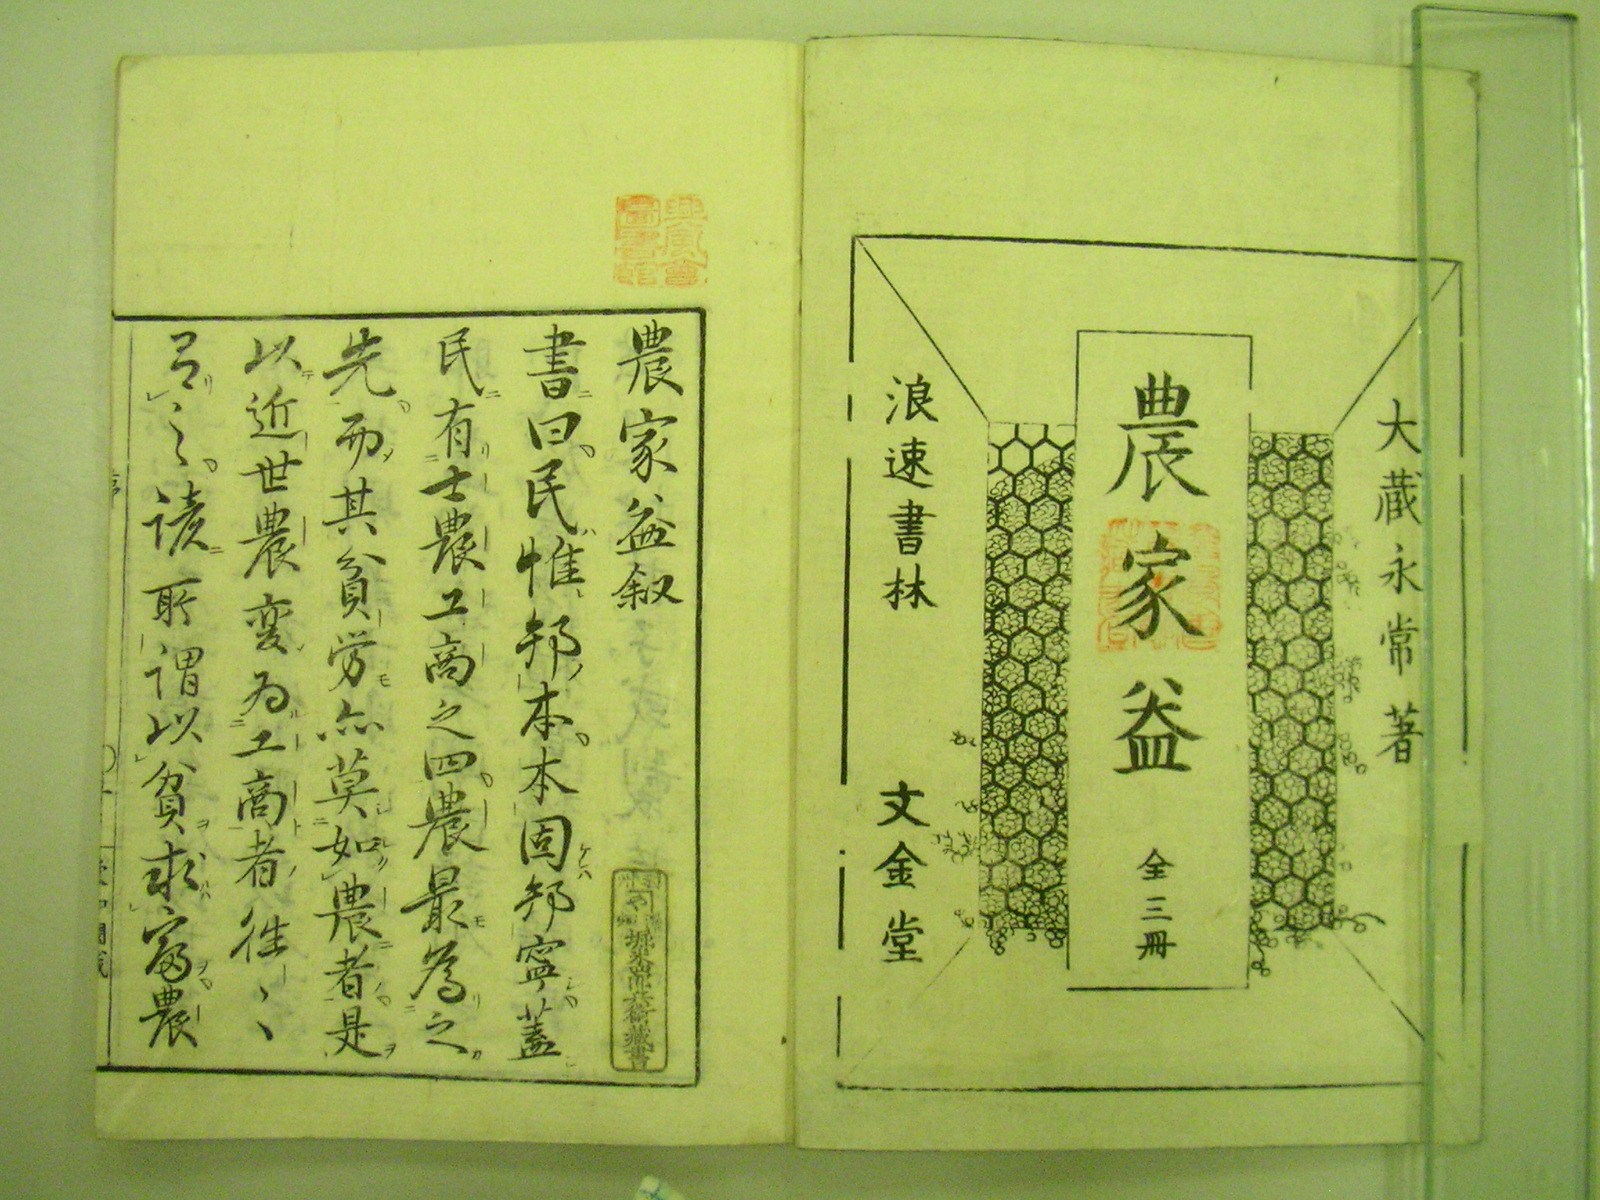 大蔵永常著
農家益 全三冊
浪速書林 文金堂
農家益叙
書曰民惟邦本本固邦寧蓋
民有士農工商之四農最為之
先而其貧労亦莫如農者是
以近世農変為工商者徃〻
有之諺所謂以貧求富農
序